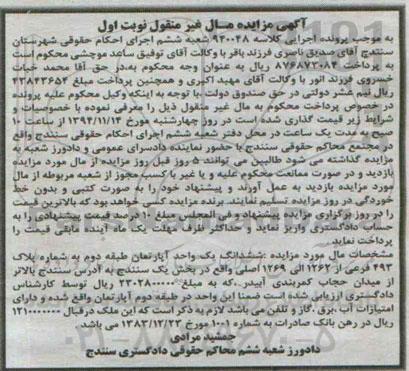 آگهی مزایده مال غیر منقول نوبت اول
به موجب پرونده اجرایی کلاسه ۹۲۰۰۴۸ شعبه ششم اجرای احکام حقوقی شهرستان
سنندج آقای صدیق ناصری فرزند باقر با وکالت آقای توفیق ساعد موچشی محکوم است
به پرداخت ۸۷۶۸۷۳۰۸۴ ریال به عنوان وجه محکوم به.در حق آقا محمد حیات
خسروی فرزند انور با وکالت آقای مهید اکبری و همچنین پرداخت مبلغ ۴۳۸۴۳۶۵۴
ریال نیم عشر دولتی در حق صندوق دولت .با توجه به اینکه وکیل محکوم علیه پرونده
در خصوص پرداخت محکوم به مال غیر منقول ذیل را معرفی نموده با خصوصیات و
شرایط زیر قیمت گذاری شده است در روز چهارشنبه مورخ ۱۳۹۴/۱۱/۱۴ از ساعت ۱۰
صبح به مدت یک ساعت در محل دفتر شعبه ششم اجرای احکام حقوقی سنندج واقع
در مجتمع محاکم حقوقی سنندج با حضور نماینده دادسرای عمومی و دادورز شعبه به
مزایده گذاشته می شود طالبین می توانند ۵ روز قبل روز مزایده از مال مورد مزایده
بازدید و در صورت ممانعت محکوم علیه و یا غیر با کسب مجوز از شعبه مربوطه از مال
مورد مزایده بازدید به عمل آورند و پیشنهاد خود را به صورت کتبی و بدون خط
خوردگی در روز مزایده تسلیم نمایند. برنده مزایده کسی خواهد بود که بالاترین قیمت
را در روز برگزاری مزایده پیشنهاد و فی المجلس مبلغ ۱۰ درصد قیمت پیشنهادی را به
حساب دادگستری واریز نماید و حداکثر ظرف مهلت یک ماه آینده مابقی قیمت را
پرداخت نماید.
مشخصات مال مورد مزایده :ششدانگ یک واحد آپارتمان طبقه دوم به شماره پلاک
۴۹۳ فرعی از ۱۲۶۲ الی ۱۲۶۹ اصلی واقع در بخش یک سنندج به آدرس سنندج بالاتر
از میدان حجاب کمربندی آبیدر .که به مبلغ ۲۳۰۲۸۰۰۰۰۰ ریال توسط کارشناس
دادگستری ارزیابی شده است ضمنا این واحد در طبقه دوم آپارتمان واقع شده و دارای
امتیازات آب .برق .گاز و تلفن می باشد لازم به ذکر است که این ملک درقبال ۱۲۱۰۰۰۰۰۰۰
ریال در رهن بانک صادرات به شماره ۱۰۰۱ مورخ ۱۳۸۳/۱۲/۲۳ می باشد.
جمشید مرادی
دادورز شعبه ششم محاکم حقوقی دادگستری سنندج